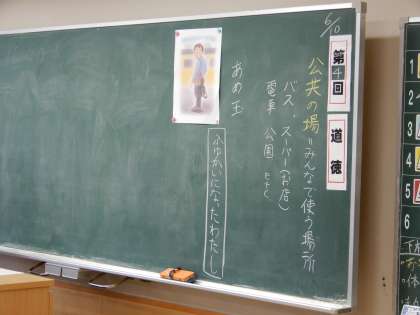 6/10
第4回 道徳
公共の場=みんなで使う場所
バス・スーパー(お店)
電車 公園 etc
あめ玉
ふゆかいになったわたし
1
2
3
4
5
6